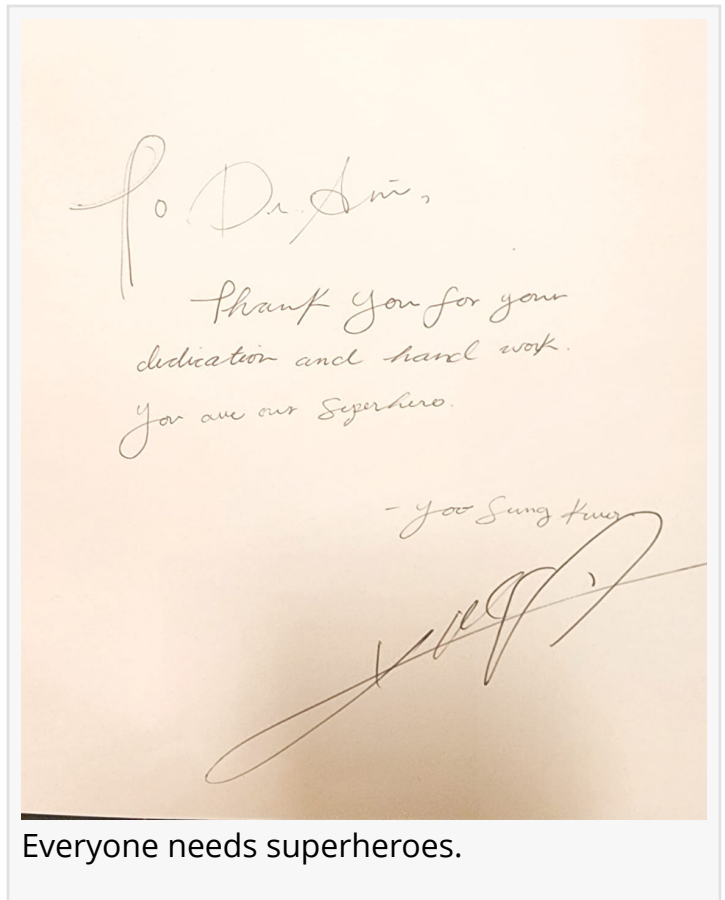 To Dr. Ami,
Thank you for your
dedication and hard work.
You are our Superhero.
- Yoo Sung Kwon
Everyone needs superheroes.